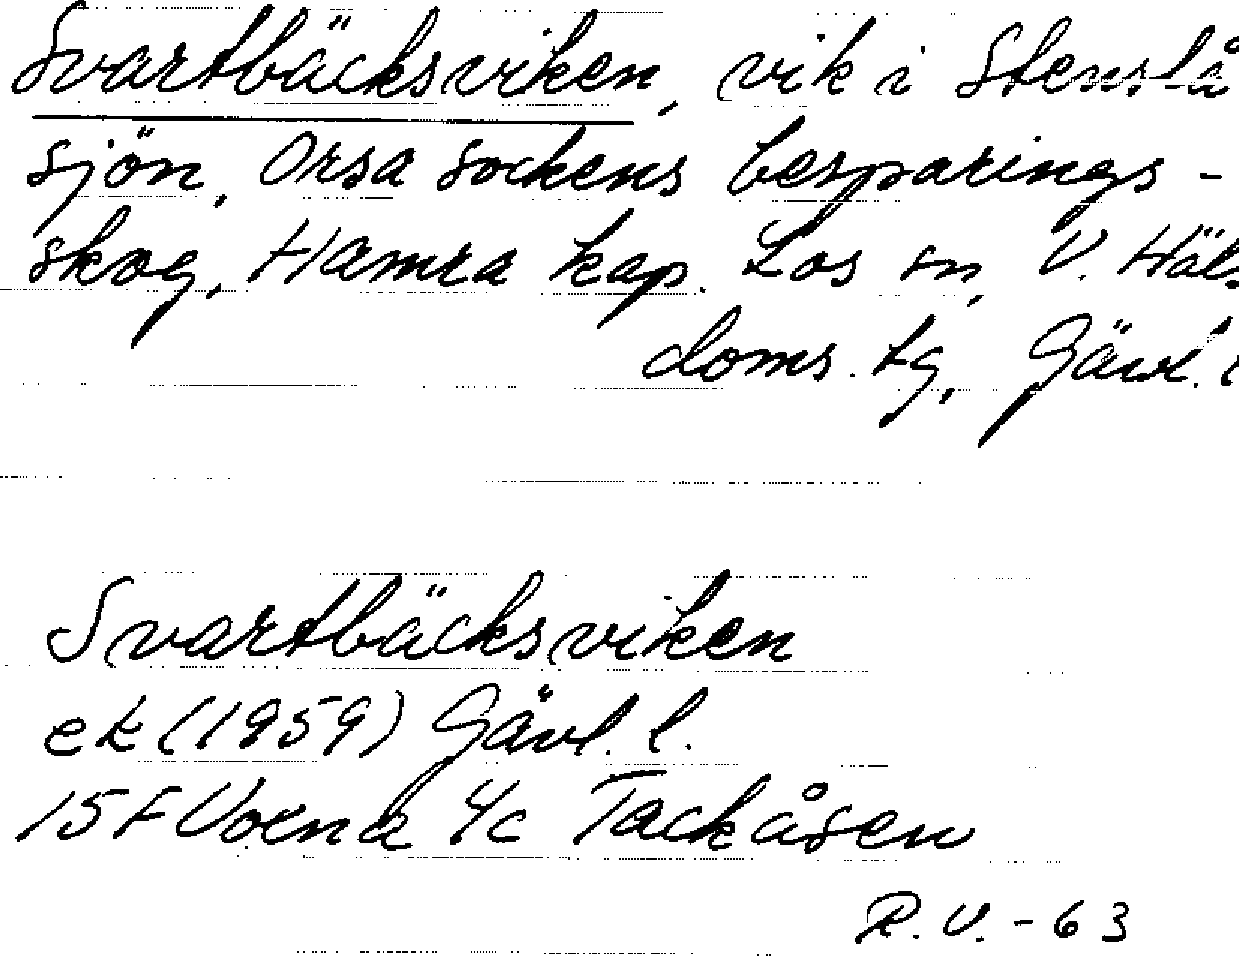 Svartbäcksviken, vik i Stenslå
sjön, Orsa sockens besparings-
skog, Hamra kap. Los sn, V. Häls
doms. tg, Gävl. l
Svartbäcksviken
ek (1959) Gävl. l.
15 F Voxna 4c Tackåsen
R.V. -63